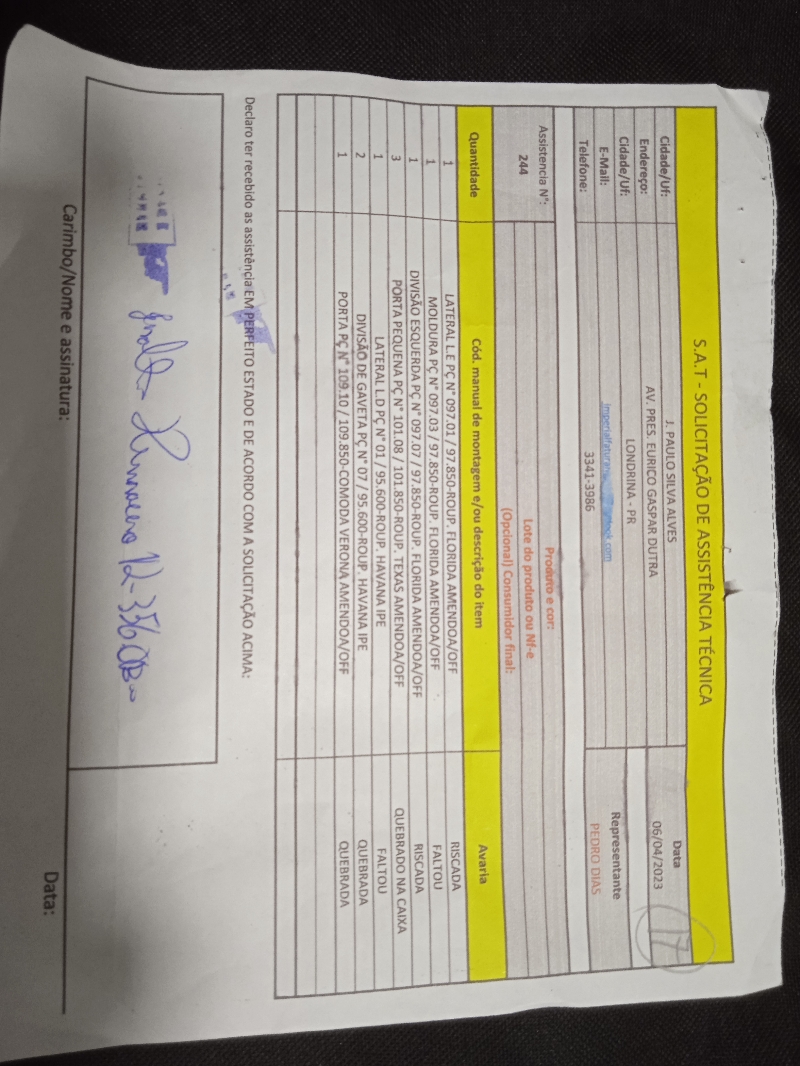 S.A.T - SOLICITAÇÃO DE ASSISTÊNCIA TÉCNICA
Cidade/Uf: J. PAULO SILVA ALVES Data
Endereço: AV. PRES. EURICO GASPAR DUTRA 06/04/2023
17
Cidade/Uf: LONDRINA - PR Representante
E-Mail: PEDRO DIAS
Telefone: 3341-3986
Assistencia N°: Produto e cor:
244 Lote do produto ou Nf-e
(Opcional) Consumidor final:
Quantidade Cód. manual de montagem e/ou descrição do item Avaria
1 LATERAL L.E PÇ N° 097.01 / 97.850-ROUP. FLORIDA AMENDOA/OFF RISCADA
1 MOLDURA PÇ N° 097.03 / 97.850-ROUP. FLORIDA AMENDOA/OFF FALTOU
1 DIVISÃO ESQUERDA PÇ N° 097.07 / 97.850-ROUP. FLORIDA AMENDOA/OFF RISCADA
3 PORTA PEQUENA PÇ N° 101.08 / 101.850-ROUP. TEXAS AMENDOA/OFF QUEBRADO NA CAIXA
1 LATERAL L.D PÇ N° 01 / 95.600-ROUP. HAVANA IPE FALTOU
2 DIVISÃO DE GAVETA PÇ N° 07 / 95.600-ROUP. HAVANA IPE QUEBRADA
1 PORTA PÇ N° 109.10 / 109.850-COMODA VERONA AMENDOA/OFF QUEBRADA
Declaro ter recebido as assistência EM PERFEITO ESTADO E DE ACORDO COM A SOLICITAÇÃO ACIMA:
Carimbo/Nome e assinatura: Data: